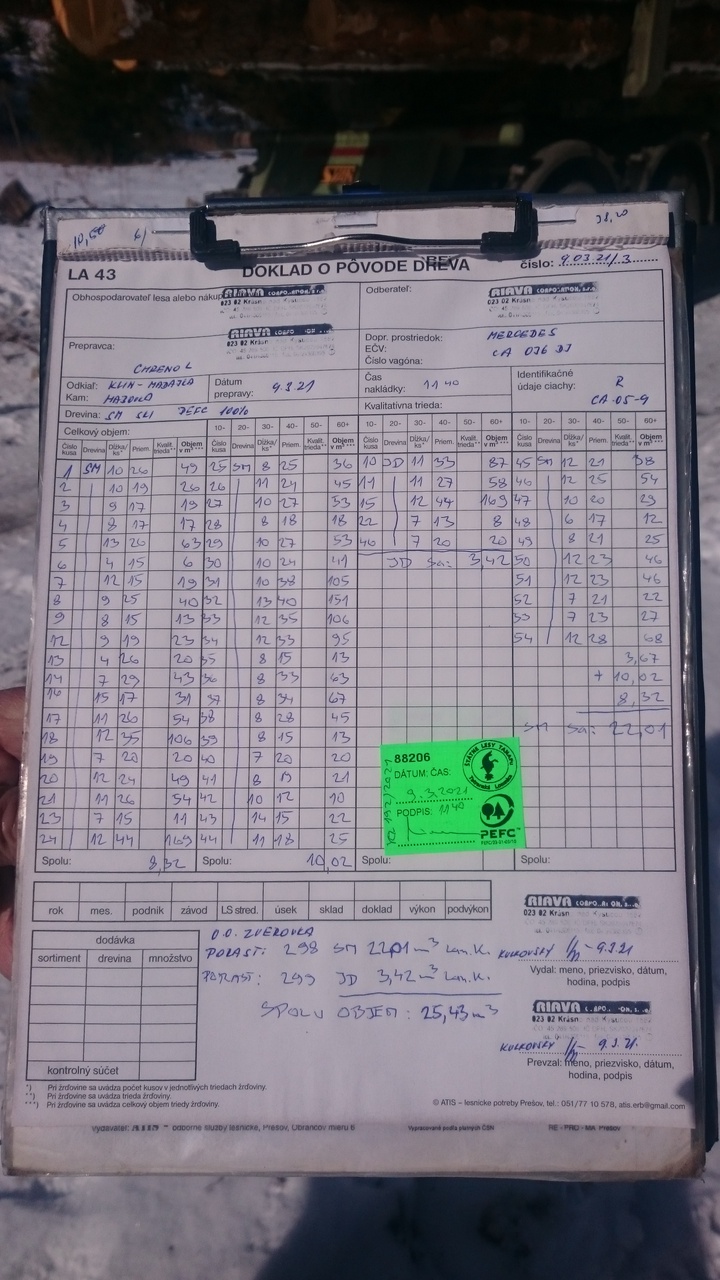 10,60
LA 43 DOKLAD O PÔVODE DREVA číslo: 9.03.21/3
Obhospodarovateľ lesa alebo nákup RIAVA CORPORATION, s.r.o.
023 02 Krásn
Odberateľ: RIAVA CORPORATION, s.r.o.
023 02 Krásn
Prepravca: RIAVA CORPO
023 02 Krásn
Dopr. prostriedok: MERCEDES
EČV: CA 036 DJ
Číslo vagóna:
Odkiaľ: KLIN - MADAJKA
Kam:
Dátum prepravy: 9.3.21
Čas nakládky: 11 40
Identifikačné údaje ciachy: R
CA-05-9
Drevina: SM PEFC 100%
Kvalitatívna trieda:
Celkový objem: 10- 20- 30- 40- 50- 60+ 10- 20- 30- 40- 50- 60+ 10- 20- 30- 40- 50- 60+
Číslo kusa Drevina Dĺžka/ks* Priem. Kvalit. trieda** Objem v m³***
1 SM 10 26 49 25 SM 8 25 36 10 JD 11 33 87 45 SM 12 21 38
2 10 19 26 26 11 24 45 11 11 27 58 46 12 25 54
3 9 17 19 27 10 27 53 15 12 44 169 47 10 20 29
4 8 17 17 28 8 18 18 22 7 13 8 48 6 17 12
5 13 26 63 29 10 27 53 40 7 20 20 49 8 21 25
6 4 15 6 30 10 24 41 JD Sa: 3 42 50 12 23 46
7 12 15 19 31 10 38 105 51 12 23 46
8 9 25 40 32 13 40 151 52 7 21 22
9 8 15 13 33 12 35 106 53 7 23 27
12 9 19 23 34 12 33 95 54 12 28 68
13 4 26 20 35 8 15 13 3,67
14 7 29 43 36 8 33 63 + 10,02
16 15 17 31 37 8 34 67 8,32
17 11 26 54 38 8 28 45 SM Sa: 22,01
18 12 35 106 39 8 15 13
19 7 20 20 40 7 20 20
20 12 24 49 41 8 21
21 11 26 54 42 10 12 10
23 7 15 11 43 14 15 22
24 12 44 169 44 11 18 25
ŠTÁTNE LESY TANAPU
Tatranská Lomnica
88206
DÁTUM: ČAS:
9.3.2021
PODPIS: 11 40
PEFC
Spolu: 8,32 Spolu: 10,02 Spolu: Spolu:
rok mes. podnik závod LS stred. úsek sklad doklad výkon podvýkon
RIAVA CORPORATION, s.r.o.
023 02 Krásn
dodávka
sortiment drevina množstvo
kontrolný súčet
O.O. ZVEROVKA
PORAST: 298 SM 22,01 m³
PORAST: 299 JD 3,42 m³
SPOLU OBJEM: 25,43 m³
9.3.21
Vydal: meno, priezvisko, dátum,
hodina, podpis
RIAVA
023 02 Krásn
9.3.21.
Prevzal: meno, priezvisko, dátum,
hodina, podpis
*) Pri žrďovine sa uvádza počet kusov v jednotlivých triedach žrďoviny.
**) Pri žrďovine sa uvádza trieda žrďoviny.
***) Pri žrďovine sa uvádza celkový objem triedy žrďoviny.
© ATIS – lesnícke potreby Prešov, tel.: 051/77 10 578, atis.erb@gmail.com
Vydavateľ: ATIS – odborné služby lesnícke, Prešov, Obrancov mieru 6 Vypracované podľa platných ČSN